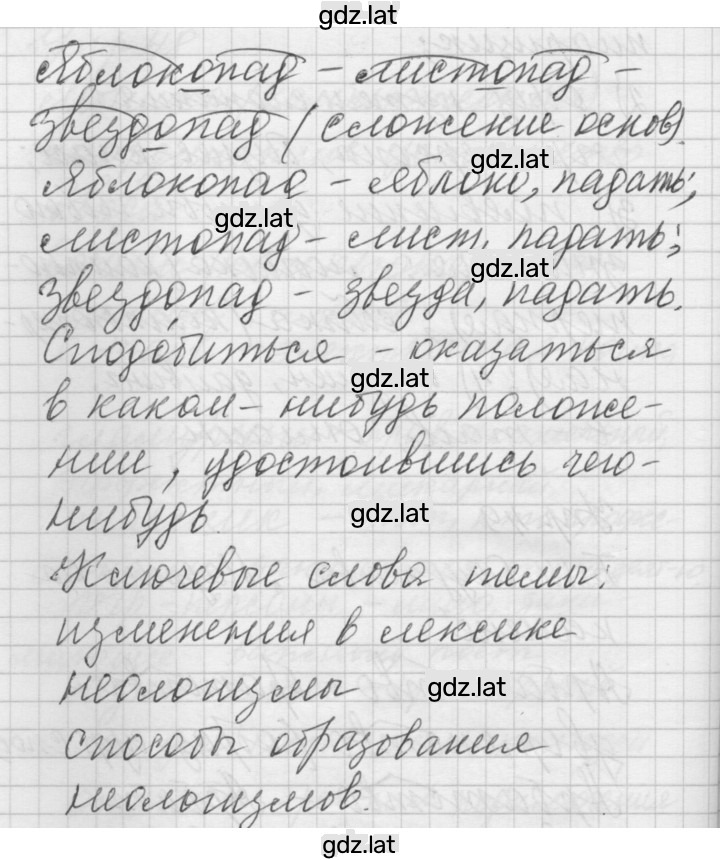 gdz.lat
Яблокопад - листопад -
звездопад (сложение основ).
gdz.lat
Яблокопад - яблоко, падать;
gdz.lat
листопад - лист, падать;
gdz.lat
звездопад - звезда, падать.
Сподо́биться - оказаться
gdz.lat
в каком-нибудь положе-
нии, удостоившись чего-
нибудь.
gdz.lat
Ключевые слова темы:
изменения в лексике
неологизмы
gdz.lat
способы образования
неологизмов.
gdz.lat